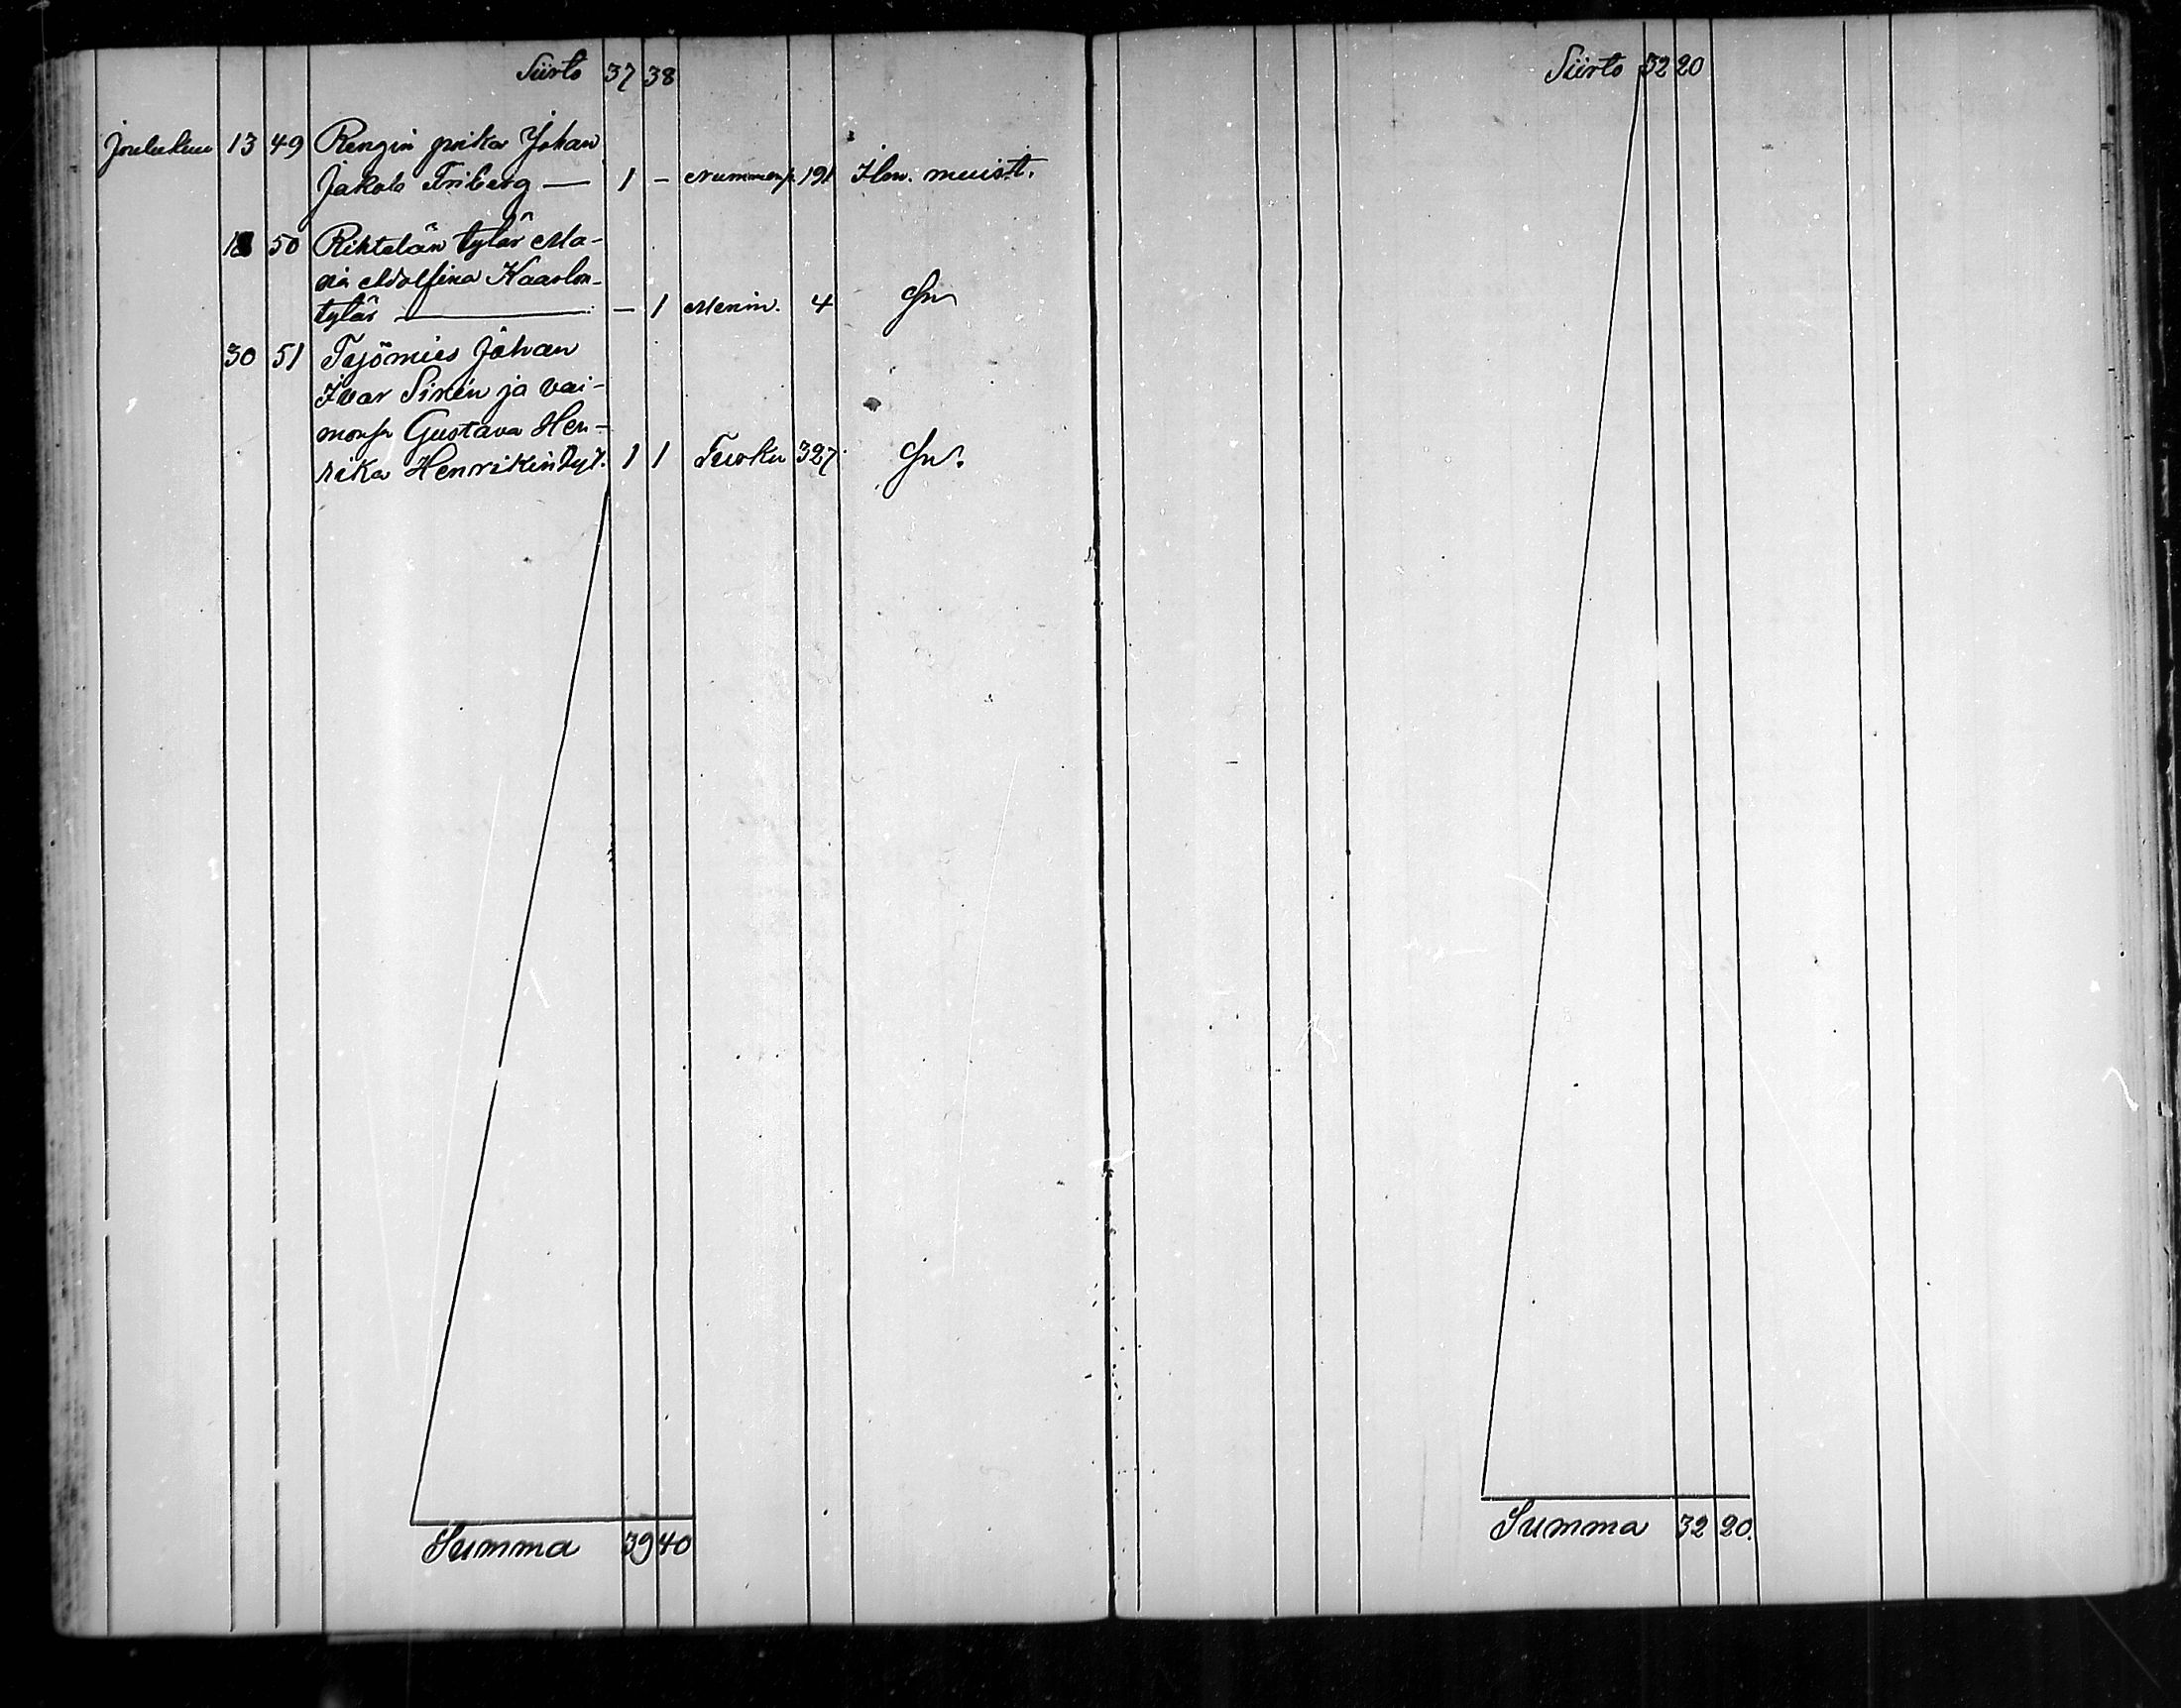 Siirto 37 38
Joulukuu 13 49 Rengin poika Johan
Jakob Friberg — 1 - Nummenp. 191 Ilm. muist.
18 50 Rihtelän tytär Ma-
ria Adolfina Kaarlon-
tytär — - 1 Merim. 4
30 51 Työmies Johan
Ivar Sirén ja vai-
monsa Gustava Hen-
rika Henrikintyt. 1 1 Turku 327
Summa 39 40
Siirto 32 20
Summa 32 20.